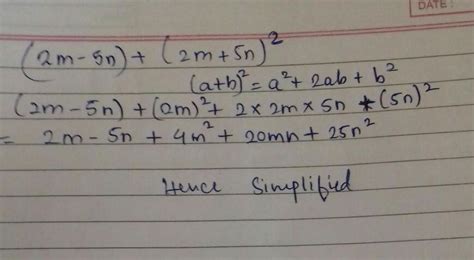 DATE:
(2m-5n)+(2m+5n)²
(a+b)²=a²+2ab+b²
(2m-5n)+(2m)²+2×2m×5n+(5n)²
= 2m-5n+4m²+20mn+25n²
Hence Simplified